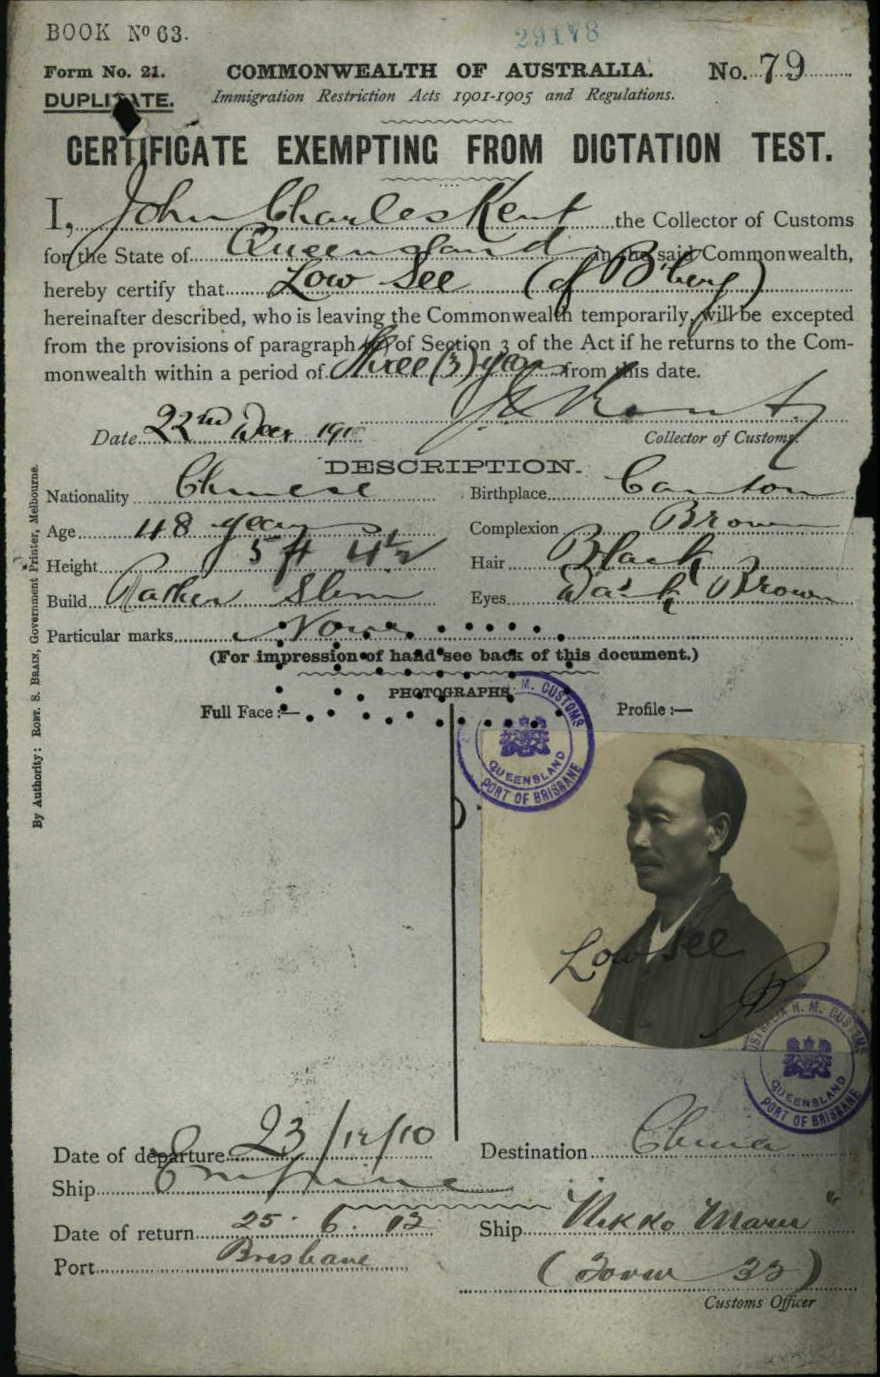 BOOK Nº 63.
29178
Form No. 21.
COMMONWEALTH OF AUSTRALIA.
No. 79
DUPLICATE.
Immigration Restriction Acts 1901-1905 and Regulations.
CERTIFICATE EXEMPTING FROM DICTATION TEST.
I, John Charles Kent the Collector of Customs
for the State of Queensland in the said Commonwealth,
hereby certify that Low See (of B'berg)
hereinafter described, who is leaving the Commonwealth temporarily, will be excepted
from the provisions of paragraph of Section 3 of the Act if he returns to the Com-
monwealth within a period of three (3) years from this date.
Date 22nd Decr 191
Collector of Customs.
DESCRIPTION.
Nationality Chinese
Birthplace Canton
Age 48 years
Complexion Brown
Height 5 ft 4½
Hair Black
Build Rather Slim
Eyes Dark Brown
Particular marks None
(For impression of hand see back of this document.)
PHOTOGRAPHS
Full Face :—
Profile :—
M. CUSTOMS
QUEENSLAND
PORT OF BRISBANE
Low See
AUSTRALIA H. M. CUSTOMS
QUEENSLAND
PORT OF BRISBANE
Date of departure 23/12/10
Destination China
Ship Empire
Date of return 25. 6. 13
Ship "Nikko Maru"
Port Brisbane
(Form 32)
Customs Officer
By Authority: ROBT. S. BRAIN, Government Printer, Melbourne.